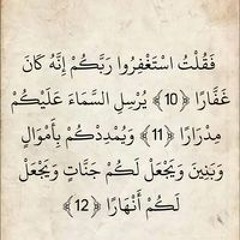 فَقُلْتُ اسْتَغْفِرُوا رَبَّكُمْ إِنَّهُ كَانَ
غَفَّارًا ﴿10﴾ يُرْسِلِ السَّمَاءَ عَلَيْكُمْ
مِدْرَارًا ﴿11﴾ وَيُمْدِدْكُمْ بِأَمْوَالٍ
وَبَنِينَ وَيَجْعَلْ لَكُمْ جَنَّاتٍ وَيَجْعَلْ
لَكُمْ أَنْهَارًا ﴿12﴾